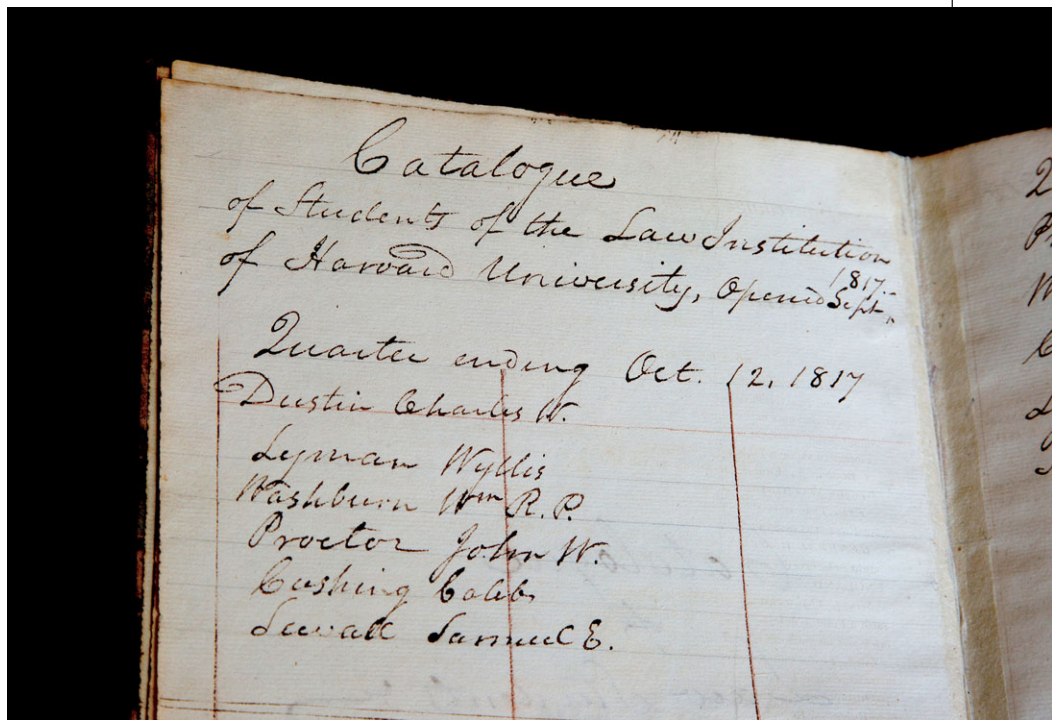 Catalogue
of Students of the Law Institution
of Harvard University, Opened Sept.
1817.
Quarter ending Oct. 12, 1817
Dustin Charles W.
Lyman Wyllis
Washburn Wm R. P.
Proctor John W.
Cushing Caleb
Sewall Samuel E.